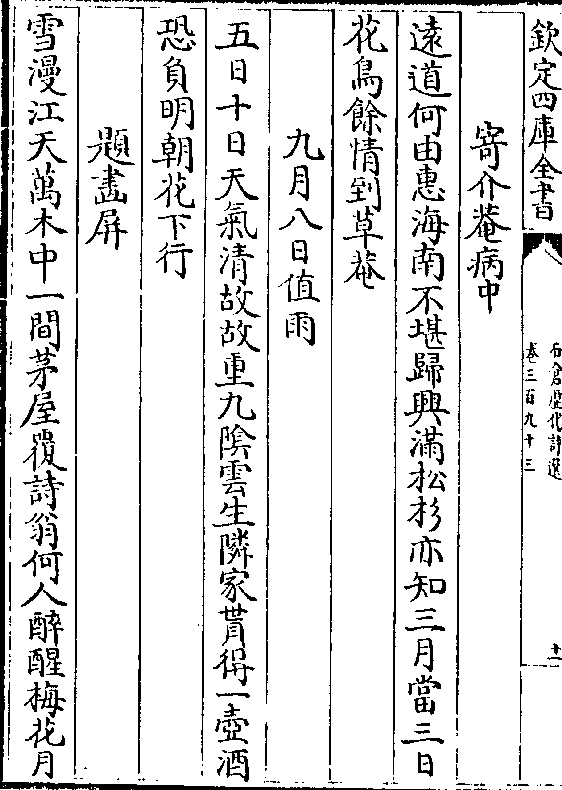 欽定四庫全書
石倉歷代詩選
卷三百九十三
十一
寄介菴病中
遠道何由惠海南不堪歸興滿松杉亦知三月當三日
花鳥餘情到草菴
九月八日值雨
五日十日天氣清故故重九陰雲生隣家貰得一壺酒
恐負明朝花下行
題畫屏
雪漫江天萬木中一間茅屋覆詩翁何人醉醒梅花月